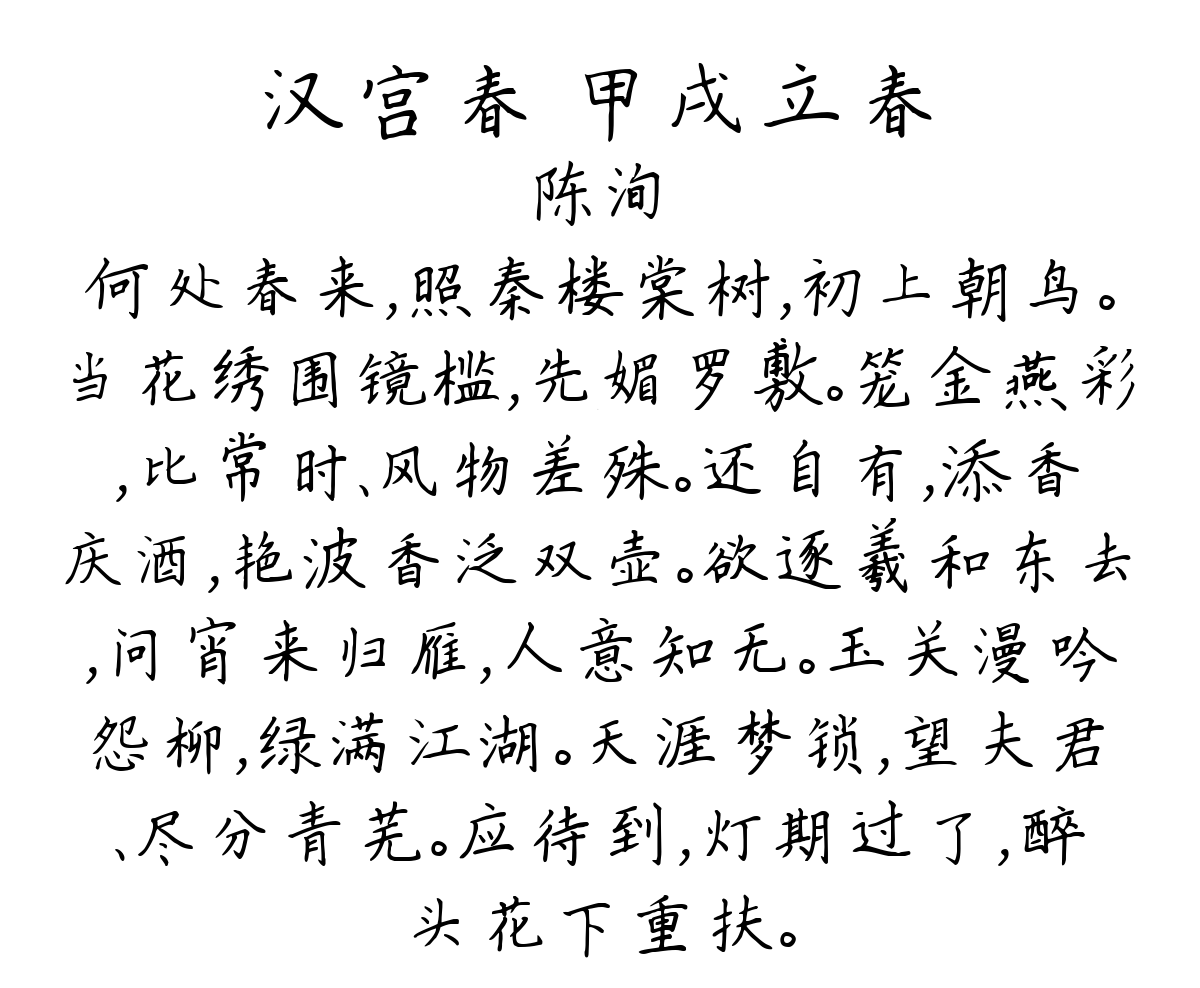 汉宫春 甲戌立春
陈洵
何处春来,照秦楼棠树,初上朝鸟。
当花绣围镜槛,先媚罗敷。笼金燕彩
,比常时、风物差殊。还自有,添香
庆酒,艳波香泛双壶。欲逐羲和东去
,问宵来归雁,人意知无。玉关漫吟
怨柳,绿满江湖。天涯梦锁,望夫君
、尽分青芜。应待到,灯期过了,醉
头花下重扶。